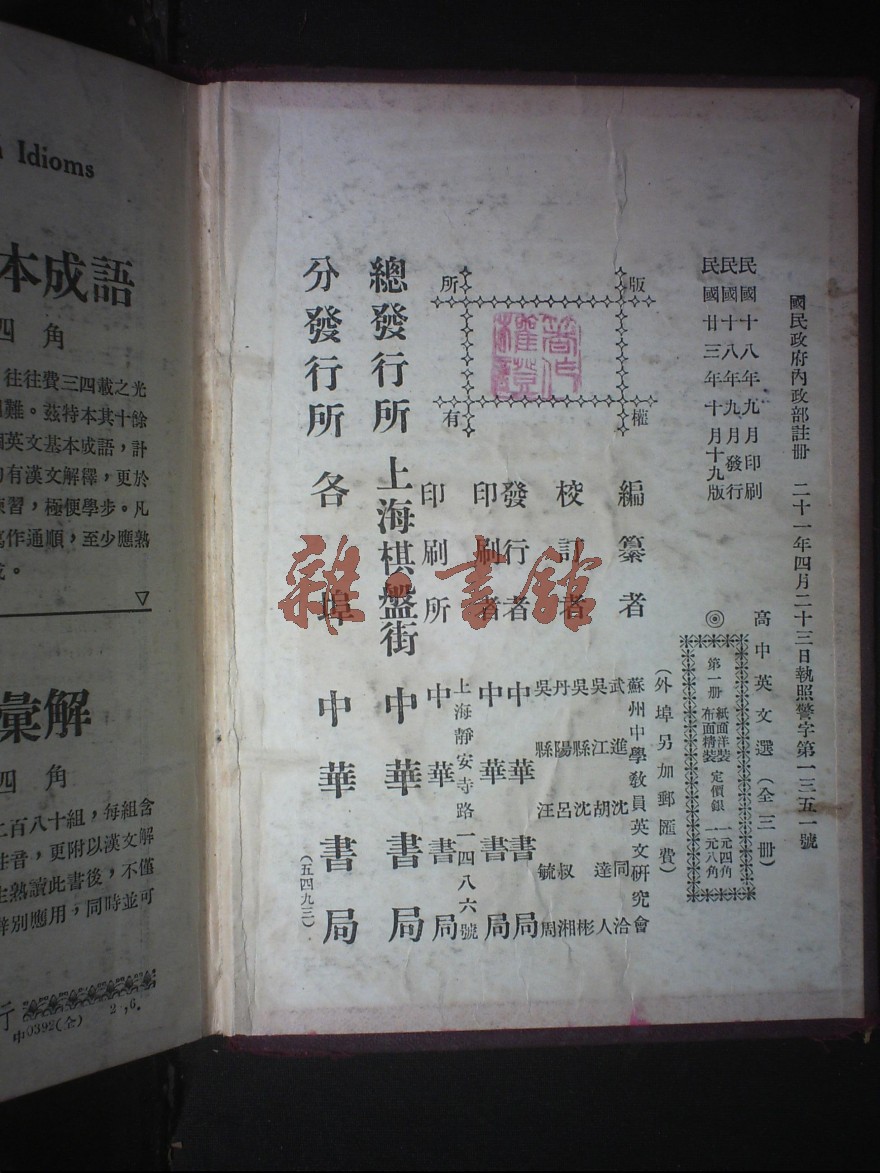 國民政府內政部註冊 二十一年四月二十三日執照警字第一三五一號
民國十八年九月印刷
民國十八年九月發行
民國廿三年十月十九版
高中英文選(全三冊)
◎ 第一册 紙面洋裝 定價銀 一元四角
布面精裝 一元八角
(外埠另加郵匯費)
版權所有
編纂者 蘇州中學教員英文研究會
校訂者 武進沈同洽
吳江胡達人
吳縣沈彬
丹陽呂叔湘
吳縣汪毓周
發行者 中華書局
印刷者 中華書局
印刷所 上海靜安寺路一四八六號
中華書局
總發行所 上海棋盤街 中華書局
分發行所 各埠 中華書局
(五四九三)
雜·書館
Idioms
本成語
四角
往往費三四載之光
難。茲特本其十餘
英文基本成語,計
有漢文解釋,更於
練習,極便學步。凡
寫作通順,至少應熟
▽
彙解
四角
二百八十組,每組含
注音,更附以漢文解
生熟讀此書後,不僅
辨別應用,同時並可
行
中0392(全) 2,6.